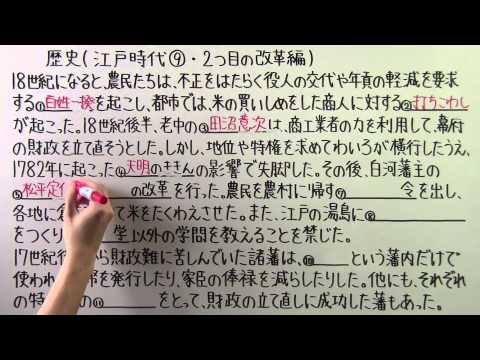 歴史(江戸時代⑨・2つ目の改革編)
18世紀になると、農民たちは、不正をはたらく役人の交代や年貢の軽減を要求
する①百姓一揆を起こし、都市では、米の買いしめをした商人に対する②打ちこわし
が起こった。18世紀後半、老中の③田沼意次は、商工業者の力を利用して、幕府
の財政を立て直そうとした。しかし、地位や特権を求めてわいろが横行したうえ、
1782年に起こった④天明のききんの影響で失脚した。その後、白河藩主の
⑤松平定 の改革を行った。農民を農村に帰す 令を出し、
各地に て米をたくわえさせた。また、江戸の湯島に
をつくり 堂以外の学問を教えることを禁じた。
17世紀 から財政難に苦しんでいた諸藩は、⑩ という藩内だけで
使われ 幣を発行したり、家臣の俸禄を減らしたりした。他にも、それぞれ
の特 の⑪ をとって、財政の立て直しに成功した藩もあった。